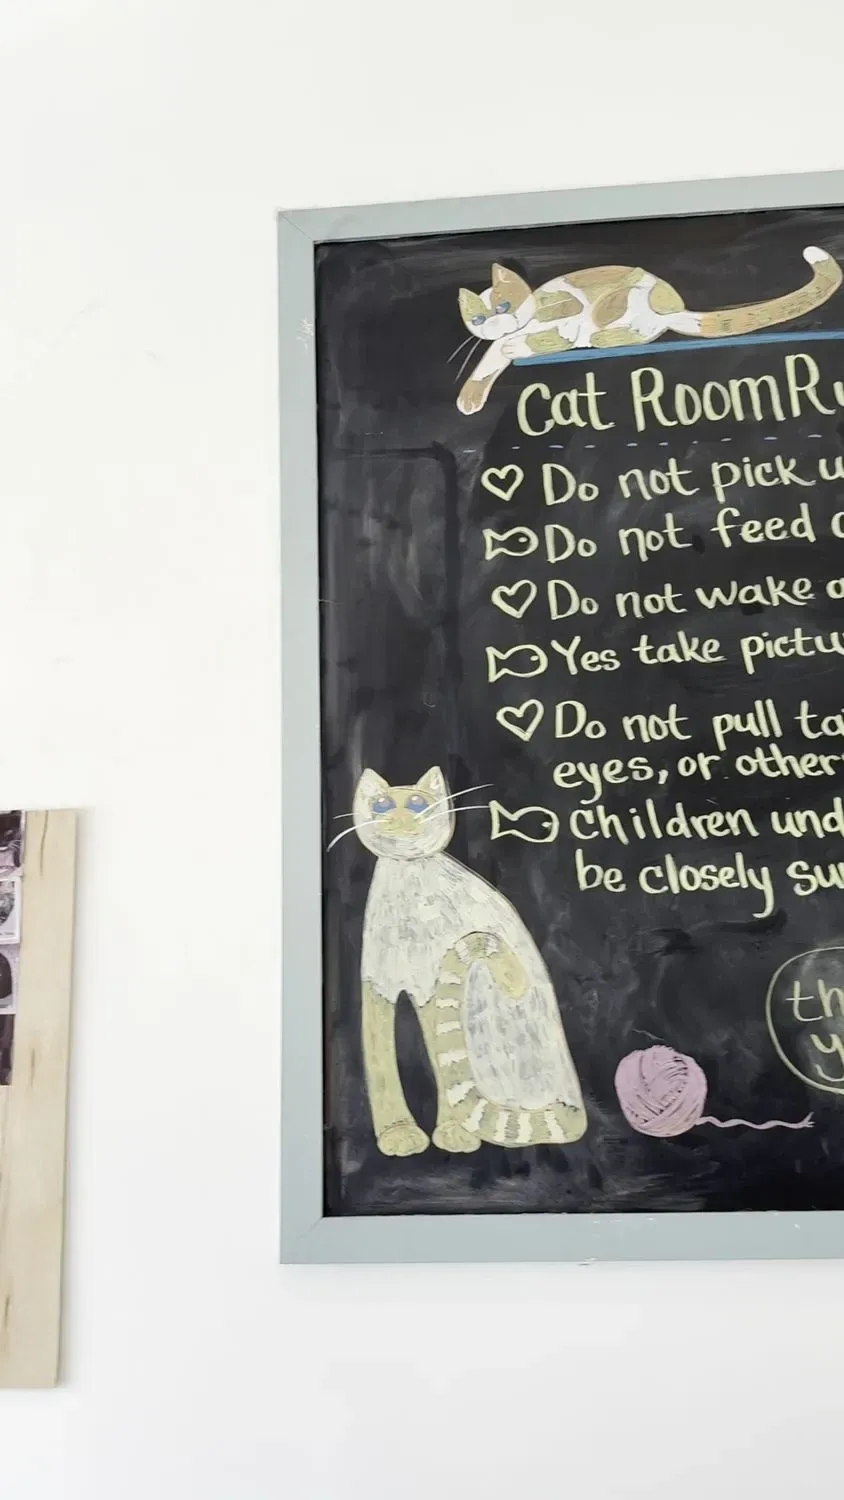 Cat Room Ru
Do not pick u
Do not feed
Do not wake a
Yes take pictu
Do not pull ta
eyes, or other
Children und
be closely su
th
y